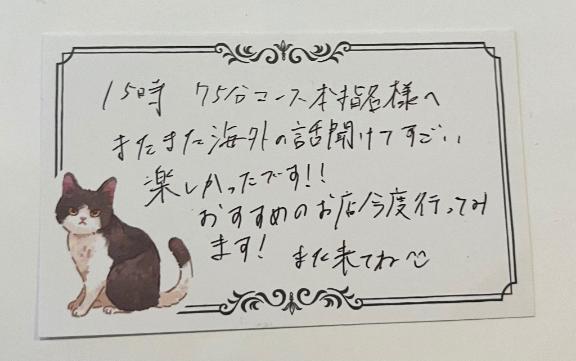 15時 75分コース本指名様へ
またまた海外の話聞けてすごい
楽しかったです!!
おすすめのお店今度行ってみ
ます! また来てね